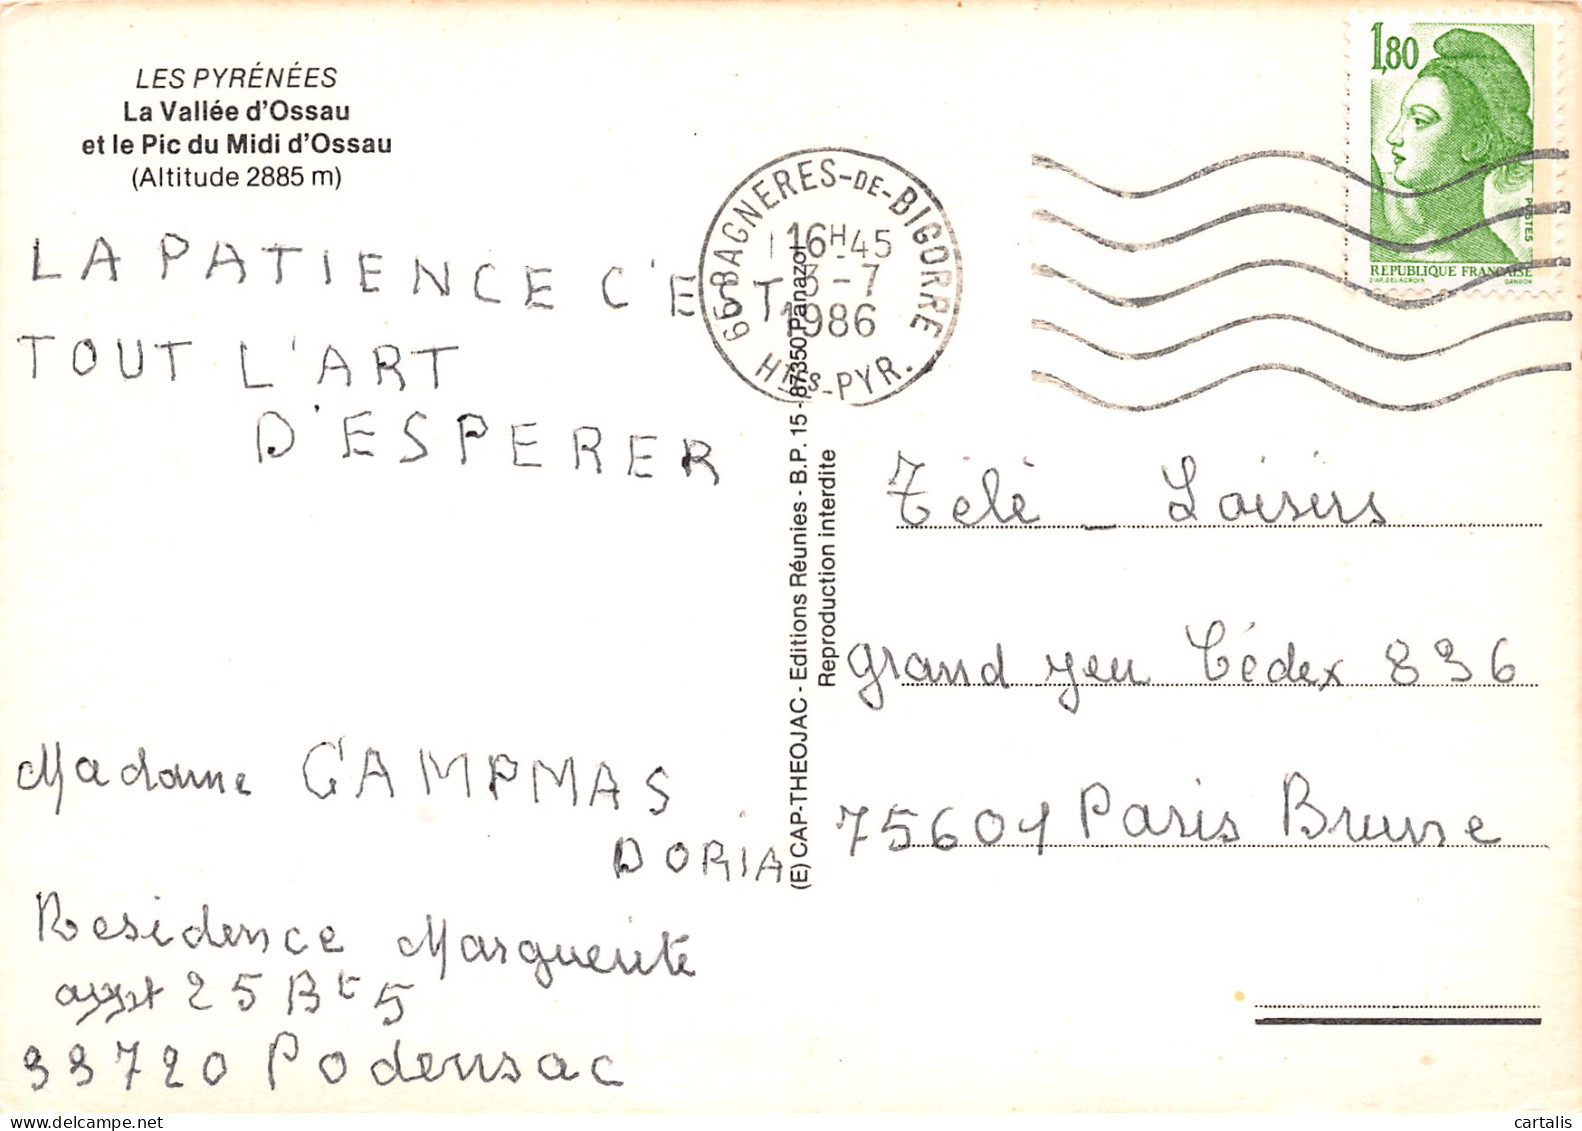 LES PYRÉNÉES
La Vallée d'Ossau
et le Pic du Midi d'Ossau
(Altitude 2885 m)
LA PATIENCE C'EST
TOUT L'ART
D'ESPERER
Madame CAMPMAS
DORIA
Residence Marguerite
appt 25 Bt 5
33720 Podensac
(E) CAP-THEOJAC - Editions Réunies - B.P. 15 - 87350 Panazol
Reproduction interdite
65 BAGNERES-DE-BIGORRE
16H45
3-7
1986
Htes-PYR.
1,80
POSTES
REPUBLIQUE FRANÇAISE
D'AP. DELACROIX GANDON
Télé - Loisirs
grand jeu Cédex 836
75604 Paris Brune
cartalis